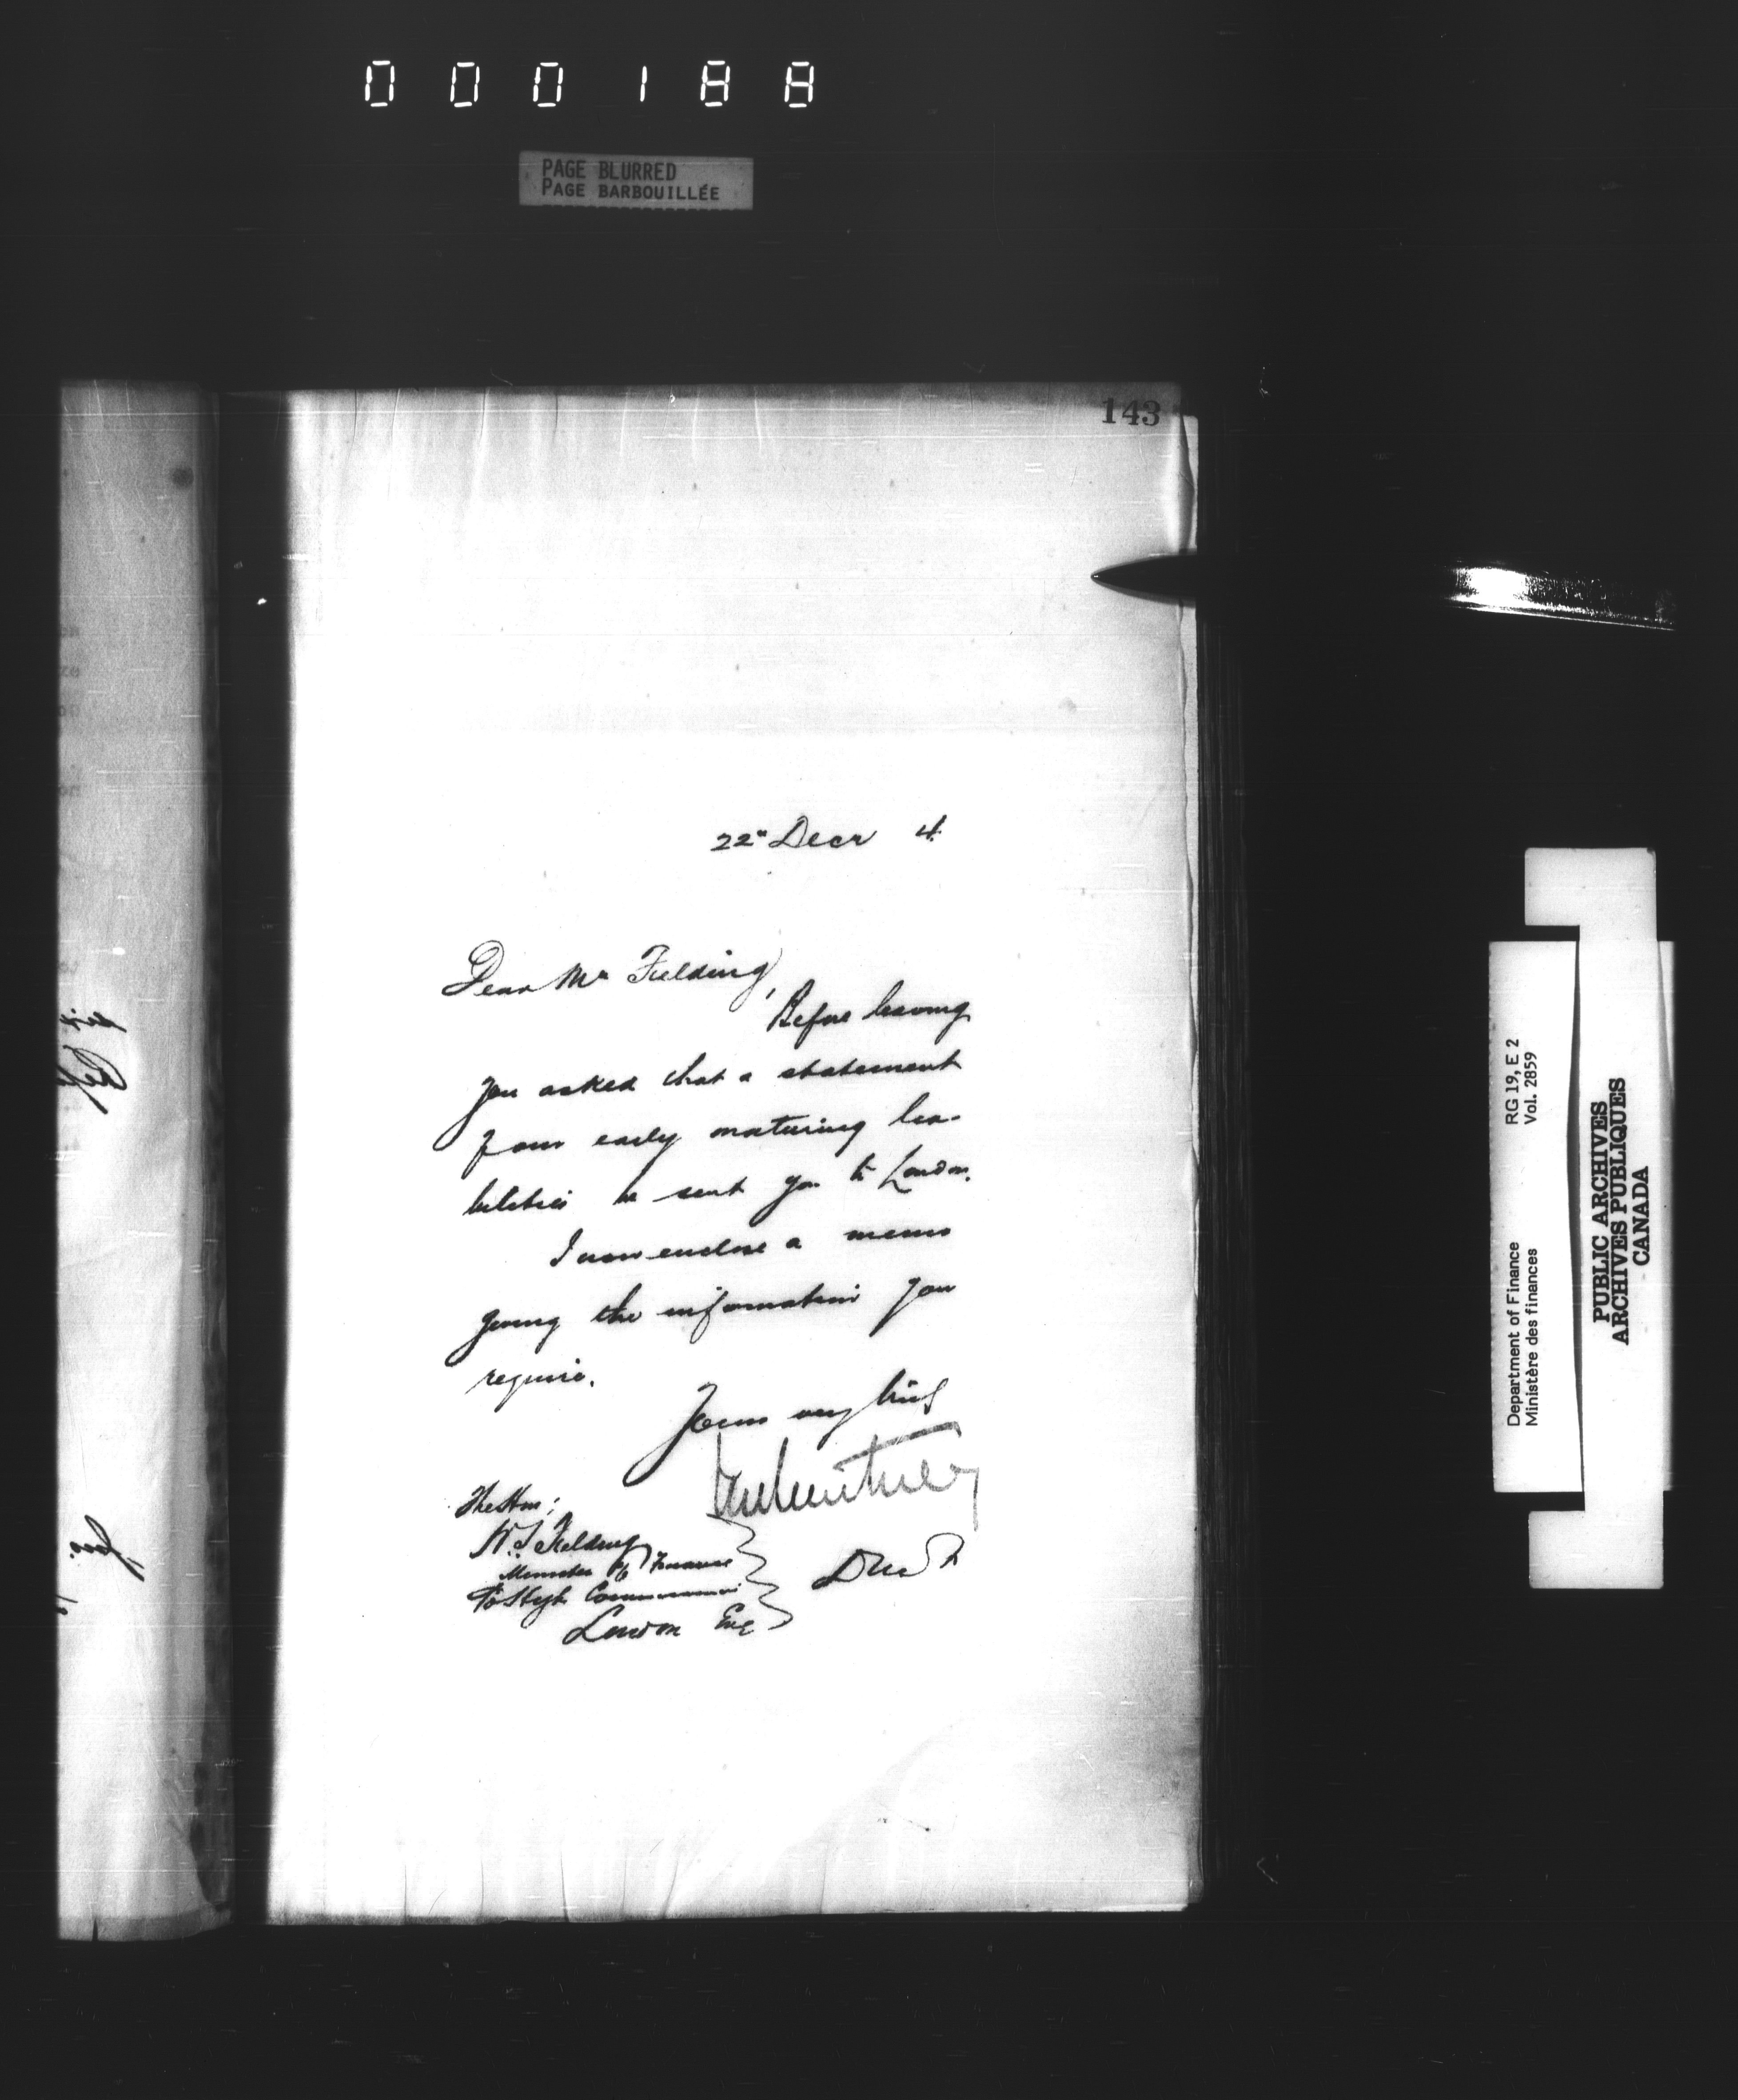 000188
PAGE BLURRED
PAGE BARBOUILLÉE
143
22" Decr 4
Dear Mr Fielding,
Before leaving
you asked that a statement
of our early maturing lia-
bilities be sent you to London.
I now enclose a memo
giving the information you
require.
Yours very truly
The Hon:
W.S. Fielding
Minister of Finance
c/o High Commissioner
London Eng
RG 19, E 2
Vol. 2859
Department of Finance
Ministère des finances
PUBLIC ARCHIVES
ARCHIVES PUBLIQUES
CANADA